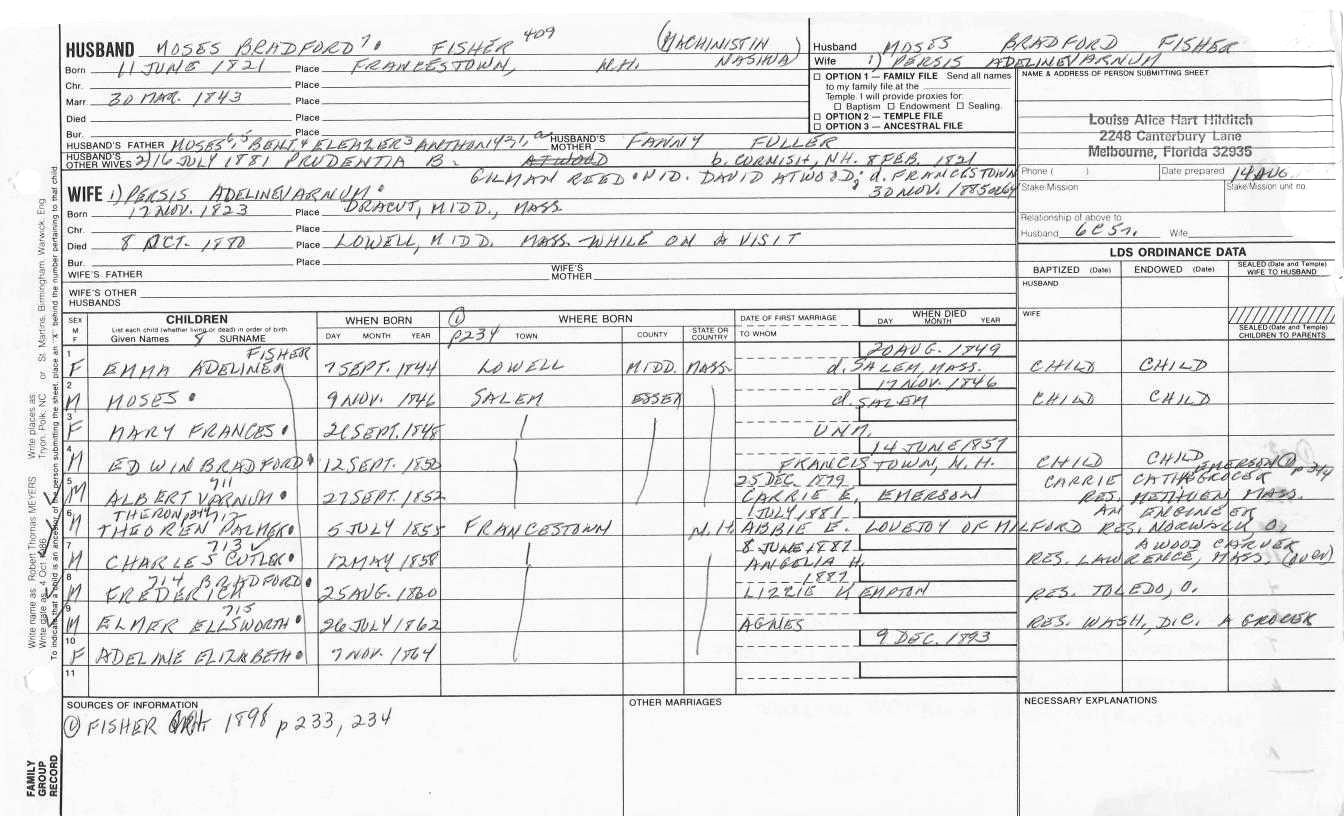 HUSBAND MOSES BRADFORD 7. FISHER 409 (MACHINIST IN NASHUA)
Born 11 JUNE 1821 Place FRANCESTOWN, N.H.
Chr. Place
Marr. 30 MAR. 1843 Place
Died Place
Bur. Place
HUSBAND'S FATHER MOSES 6, 5, BENJ 4 ELEAZER 3 ANTHONY HUSBAND'S MOTHER FANNY FULLER
HUSBAND'S OTHER WIVES 2) 16 JULY 1881 PRUDENTIA B. ATWOOD b. CORNISH, NH. 8 FEB. 1821
GILMAN REED. WID. DAVID ATWOOD; d. FRANCESTOWN
30 NOV. 1885
WIFE 1) PERSIS ADELINE VARNUM.
Born 17 NOV. 1823 Place DRACUT, MIDD., MASS
Chr. Place
Died 8 OCT. 1880 Place LOWELL, MIDD. MASS. WHILE ON A VISIT
Bur. Place
WIFE'S FATHER WIFE'S MOTHER
WIFE'S OTHER HUSBANDS
Husband MOSES BRADFORD FISHER
Wife 1) PERSIS ADELINE VARNUM
☐ OPTION 1 — FAMILY FILE Send all names
to my family file at the
Temple. I will provide proxies for:
☐ Baptism ☐ Endowment ☐ Sealing.
☐ OPTION 2 — TEMPLE FILE
☐ OPTION 3 — ANCESTRAL FILE
NAME & ADDRESS OF PERSON SUBMITTING SHEET
Louise Alice Hart Hilditch
2248 Canterbury Lane
Melbourne, Florida 32935
Phone ( ) Date prepared 14 AUG.
Stake/Mission Stake/Mission unit no.
Relationship of above to
Husband 6C5r. Wife
LDS ORDINANCE DATA
BAPTIZED (Date) ENDOWED (Date) SEALED (Date and Temple) WIFE TO HUSBAND
HUSBAND
WIFE
SEALED (Date and Temple) CHILDREN TO PARENTS
SEX M F CHILDREN WHEN BORN (1) WHERE BORN DATE OF FIRST MARRIAGE WHEN DIED
List each child (whether living or dead) in order of birth
Given Names 8 SURNAME DAY MONTH YEAR p234 TOWN COUNTY STATE OR COUNTRY TO WHOM DAY MONTH YEAR
FISHER 20 AUG. 1849
1 F EMMA ADELINE 7 SEPT. 1844 LOWELL MIDD. MASS. d. SALEM, MASS. CHILD CHILD
17 NOV. 1846
2 M MOSES. 9 NOV. 1846 SALEM ESSEX d. SALEM CHILD CHILD
3 F MARY FRANCES. SEPT. 1848 UNM.
14 JUNE 1857
4 M EDWIN BRADFORD. 12 SEPT. 1850 FRANCISTOWN, N.H. CHILD CHILD
711 25 DEC. 1879 CARRIE EMERSON p 314
5 M ALBERT VARNUM. 27 SEPT. 1852 CARRIE E. EMERSON RES. METHUEN MASS.
THERON 712 1 JULY 1881 AN ENGINEER
6 M THEOREN PALMER. 5 JULY 1855 FRANCESTOWN N.H. ABBIE E. LOVEJOY OF MILFORD RES. NORWALK O.
713 8 JUNE 1887 A WOOD CARVER
7 M CHARLES CUTLER. 12 MAY 1858 ANGELIA H. RES. LAWRENCE, MASS. (OVER)
714 BRADFORD. 1887
8 M FREDERICK 25 AUG. 1860 LIZZIE KEMPTON RES. TOLEDO, O.
715
9 M ELMER ELLSWORTH. 26 JULY 1862 AGNES RES. WASH., D.C. A GROCER
9 DEC. 1893
10 F ADELINE ELIZABETH. 7 NOV. 1864
11
SOURCES OF INFORMATION
(1) FISHER 1898 p 233, 234
OTHER MARRIAGES
NECESSARY EXPLANATIONS
Write name as Robert Thomas MEYERS Write places as Tryon, Polk, NC or St. Martins, Birmingham, Warwick, Eng
Write date as 4 Oct 1986
To indicate that a child is an ancestor of the person submitting the sheet, place an "X" behind the number pertaining to that child
FAMILY GROUP RECORD